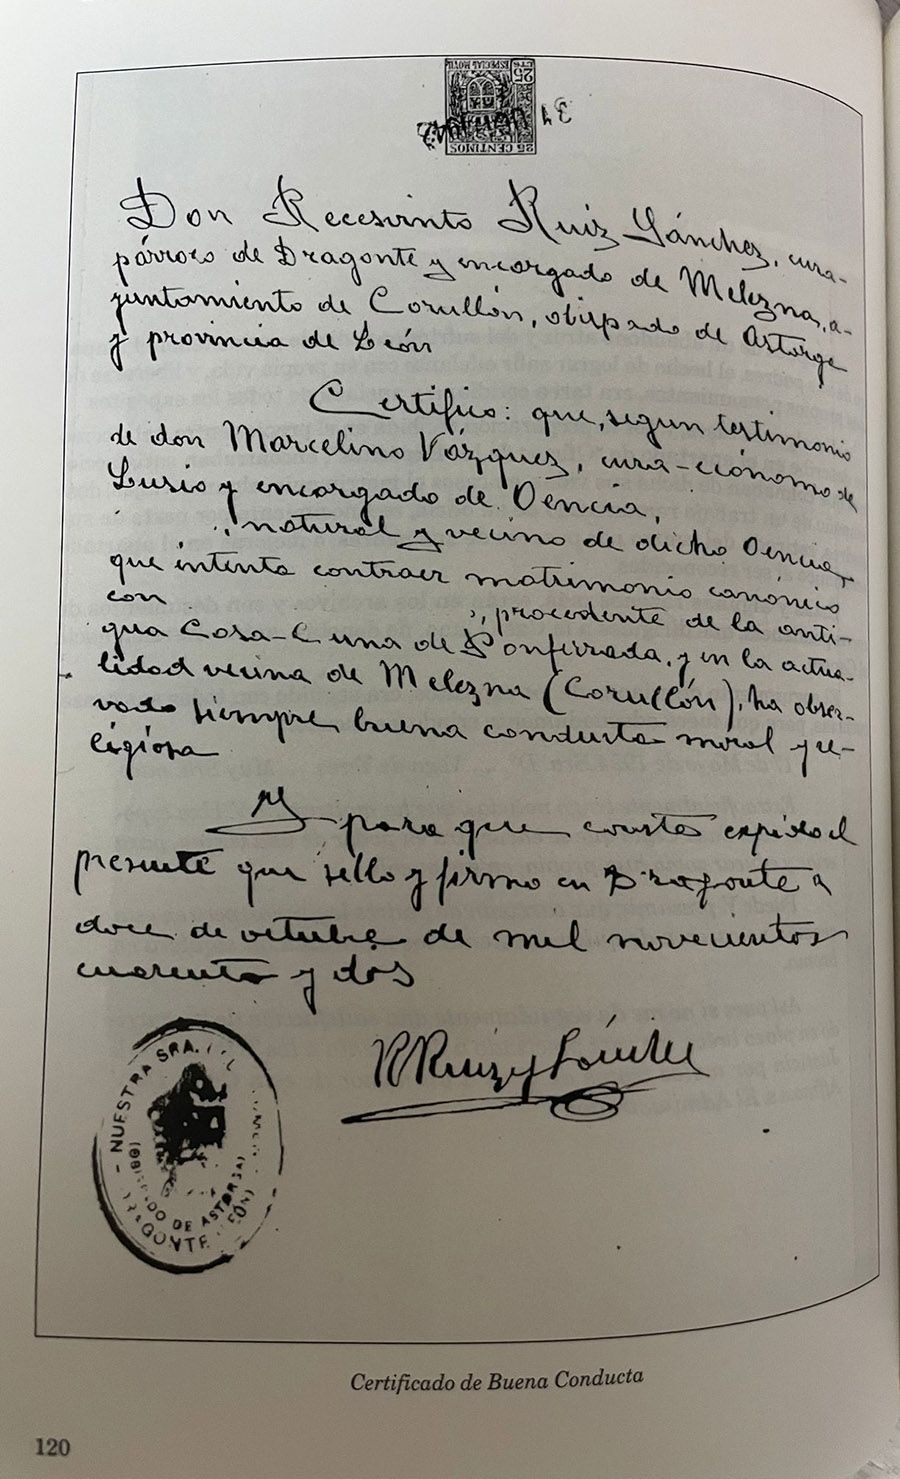 25 CTS
ESPECIAL MOVIL
25 CENTIMOS
Don Recesvinto Ruiz Sánchez, cura-
párroco de Dragonte y encargado de Melezna, a-
yuntamiento de Corullón, obispado de Astorga
y provincia de León
Certifico: que, segun testimonio
de don Marcelino Vázquez, cura-ecónomo de
Lusio y encargado de Oencia,
natural y vecino de dicho Oencia,
que intenta contraer matrimonio canónico
con , procedente de la anti-
gua Casa-Cuna de Ponferrada, y en la actua-
lidad vecina de Melezna (Corullón), ha obser-
vado siempre buena conducta moral y re-
ligiosa
Y para que conste expido el
presente que sello y firmo en Dragonte a
doce de octubre de mil novecientos
cuarenta y dos
R Ruiz y Sánchez
NUESTRA SRA.
DE ASTORGA)
Certificado de Buena Conducta
120